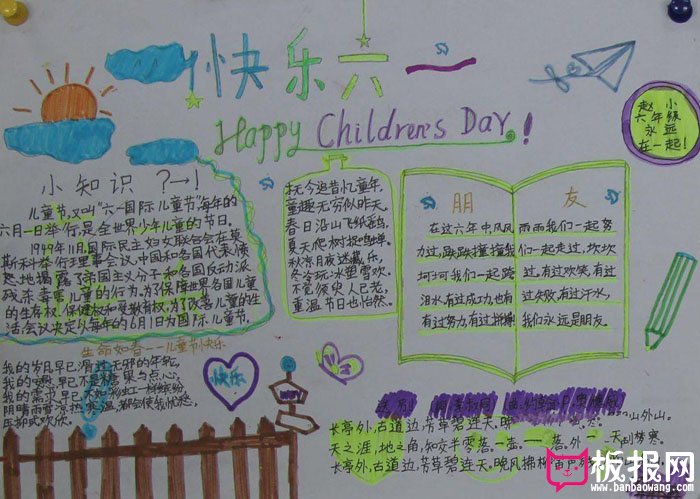 快乐六一
Happy Children's Day!
赵小
六年级
永远
在一起!
小知识 ?→!
儿童节,又叫"六一国际儿童节"每年的
六月一日举行,是全世界少年儿童的节日。
1949年11月国际民主妇女联合会在莫
斯科举行理事会议,中国和各国代表愤
怒地揭露了帝国主义分子和各国反动派
残杀毒害儿童的行为。为了保障世界各国儿童
的生存权、保健权和受教育权,为了改善儿童的生
活会议决定以每年的6月1日为国际儿童节。
抚今追昔忆童年,
童趣无穷似昨天。
春日沿山飞纸鸢,
夏天爬树捉鸣蝉。
秋宵月夜迷藏乐,
冬浴玩冰堕雪欢。
不觉须臾人已老,
重温节日也怡然。
朋友
在这六年中风风雨雨我们一起努
力过,跌跌撞撞我们一起走过,坎坎
坷坷我们一起跨过,有过欢笑,有过
泪水,有过成功也有过失败,有过汗水,
有过努力,有过拼搏我们永远是朋友。
生命如春——儿童节快乐
我的岁月早已滑过无邪的年轮,
阴晴雨雪凉热寒温,都会使我忧愁,
快乐
长亭外,古道边,芳草碧连天。晚
山外山。
天之涯,地之角,知交半零落。一壶
长亭外,古道边,芳草碧连天。晚风拂柳笛声残
板报网
www.banbaowang.com